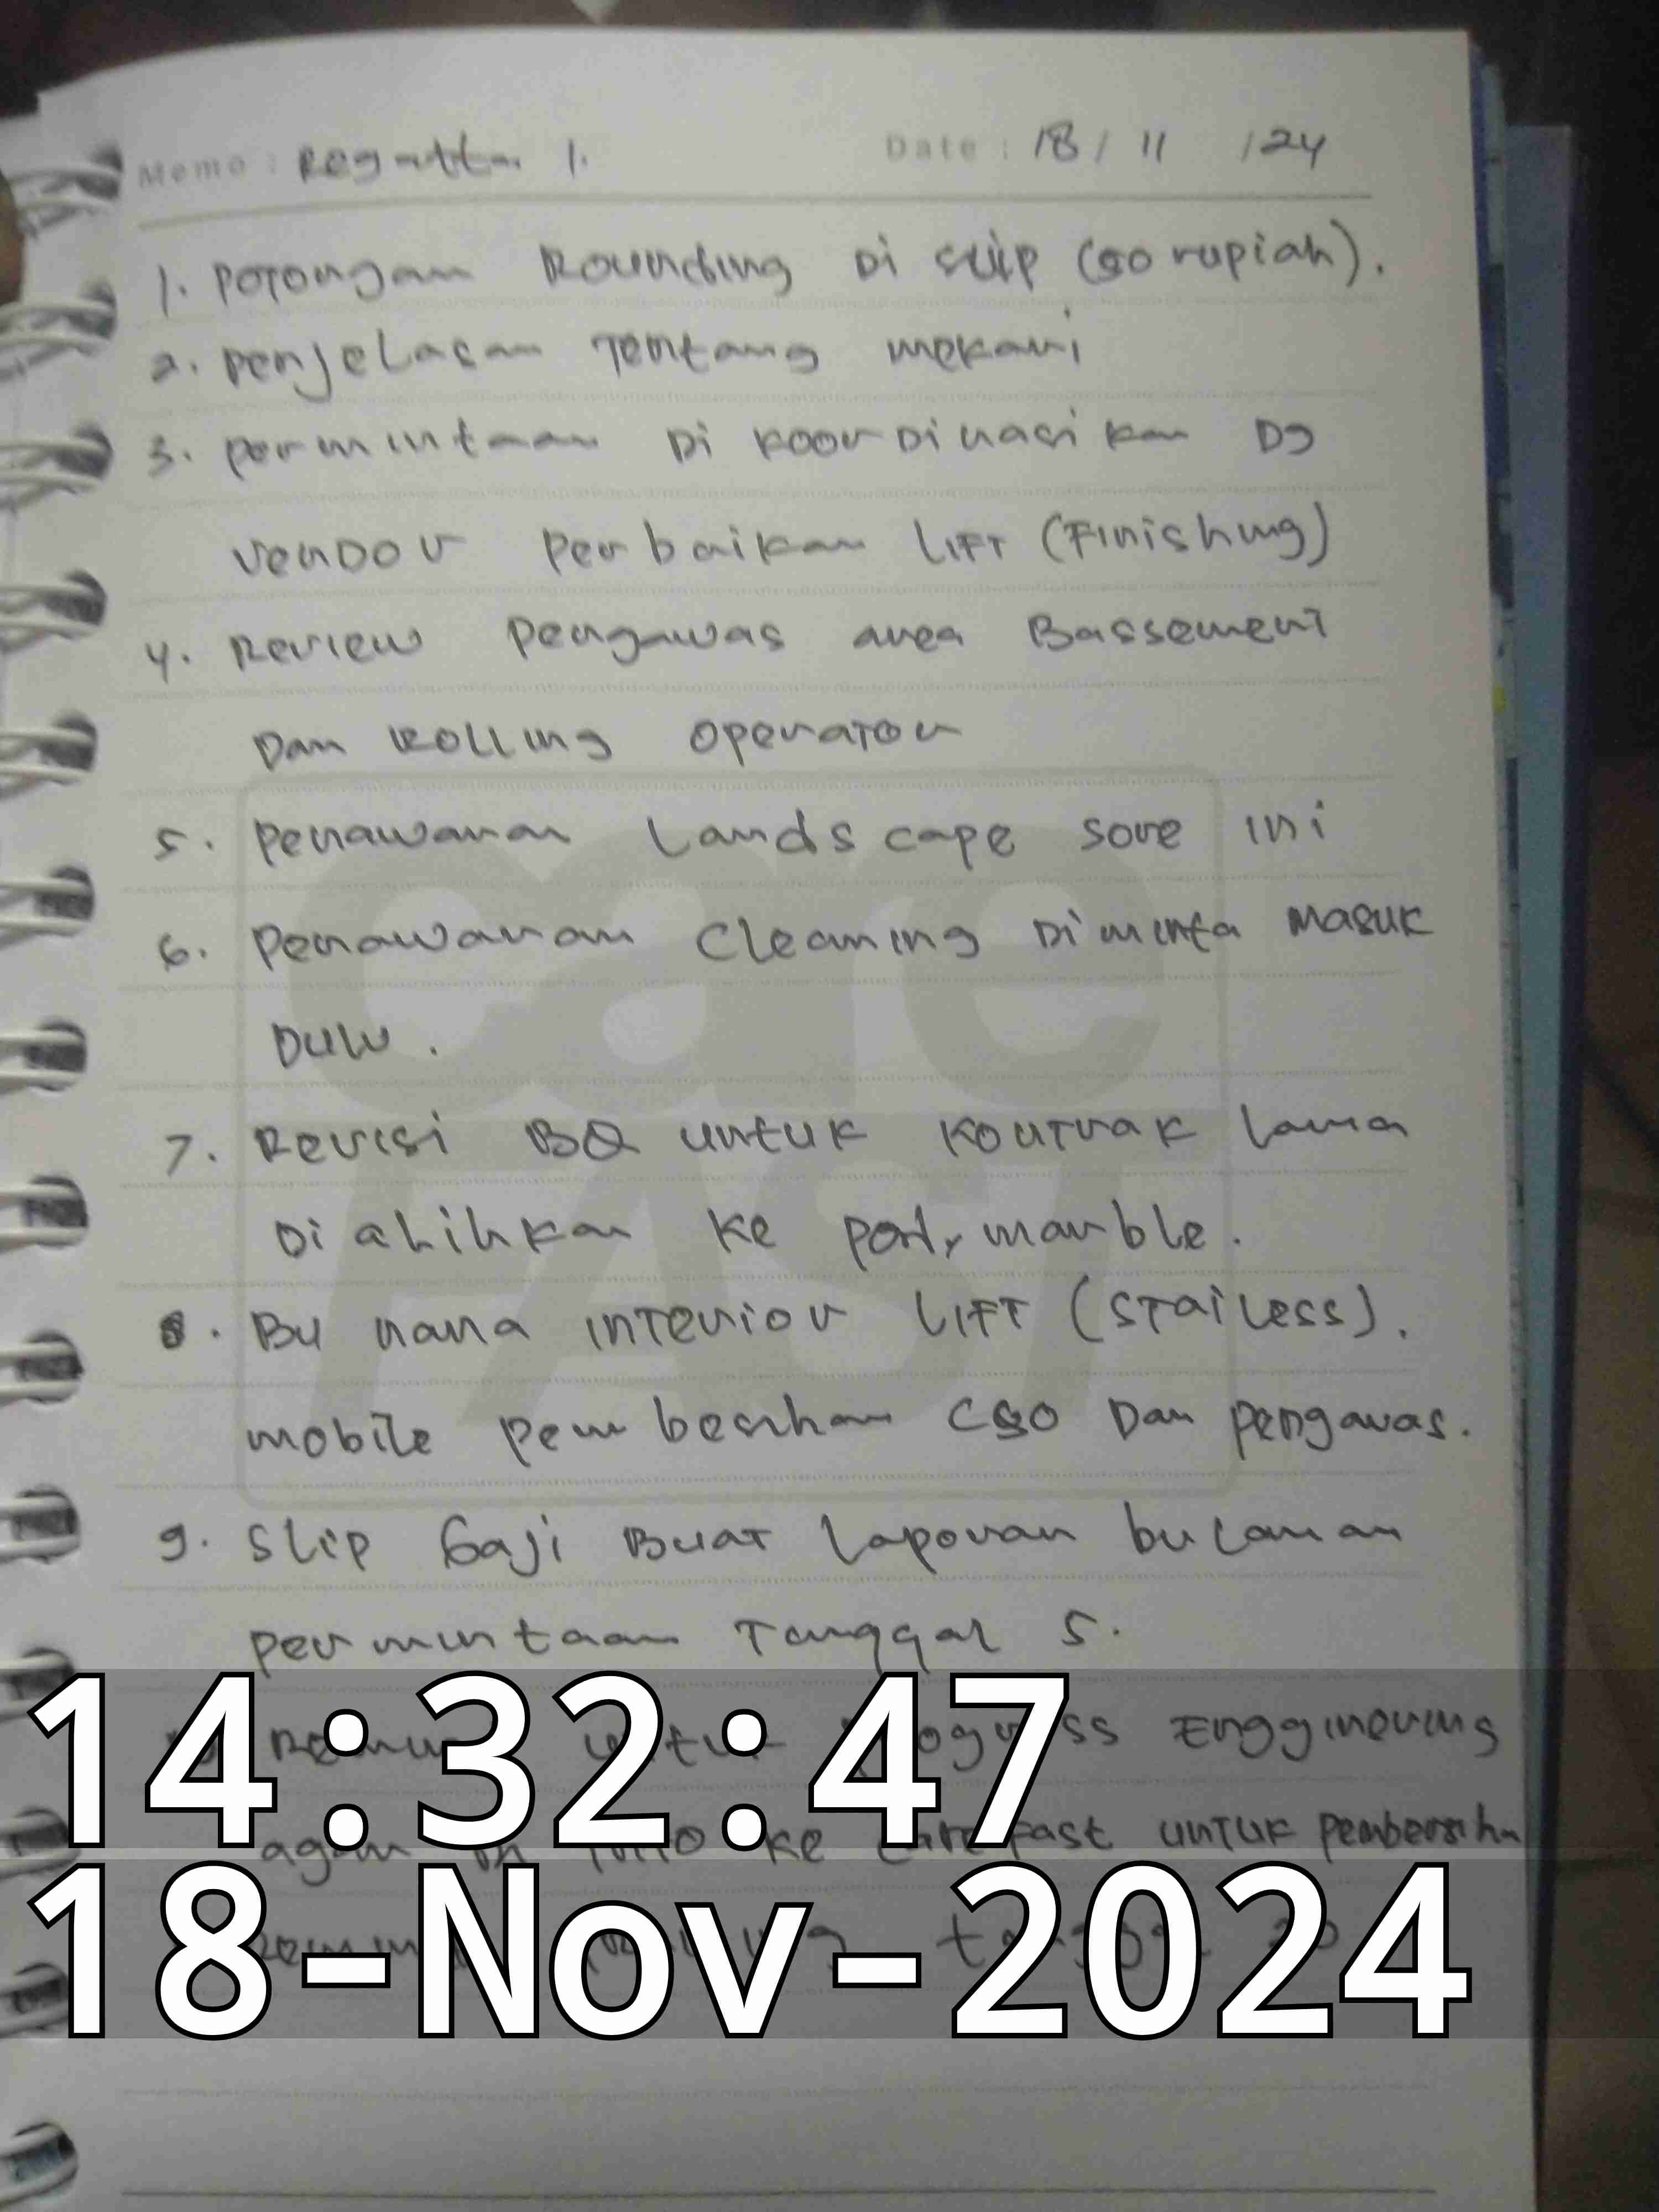 Memo : Regatta 1.
Date : 18 / 11 / 24
1. Potongan Rounding Di slip (50 rupiah).
2. Penjelasan Tentang mekari
3. Permintaan Di koordinasikan Dg
vendor Perbaikan LIFT (Finishing)
4. Review Pengawas area Bassement
Dan Rolling operator
5. Penawaran Landscape sore ini
6. Penawaran Cleaning Diminta Masuk
Dulu.
7. Revisi BQ untuk Kontrak Lama
Di alihkan ke marble.
8. Bu nana INTERIOR LIFT (STAILess).
mobile Pembersihan CSO Dan pengawas.
9. Slip Gaji Buat Laporan bulanan
Permintaan Tanggal 5.
untuk progress Enggineering
agar ke carefast untuk Pembersiha
care
FAST
14:32:47
18-Nov-2024